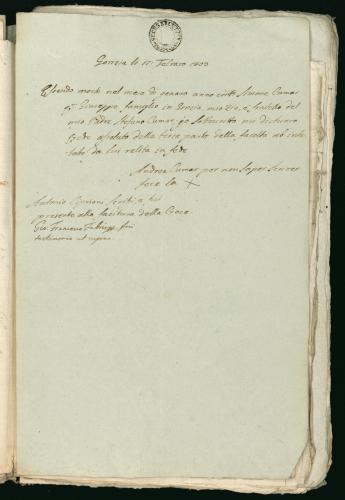 Gorizia li 17 Febraro 1803
Essendo morto nel mese di genaro anno corte Cumar
qm Giuseppe famiglio in Gorizia, mio Zio, e fratello del
mio Padre Stefano Cumar, io sottoscritto mi dichiaro
Erede assoluto della terza parte della facoltà ab intes
tato da lui relita in fede
Andrea Cumar per non saper scriver
fece la X
Antonio scritti, e fui
presente alla facitura della Croce
Gio Francesco fui
testimonio ut supra